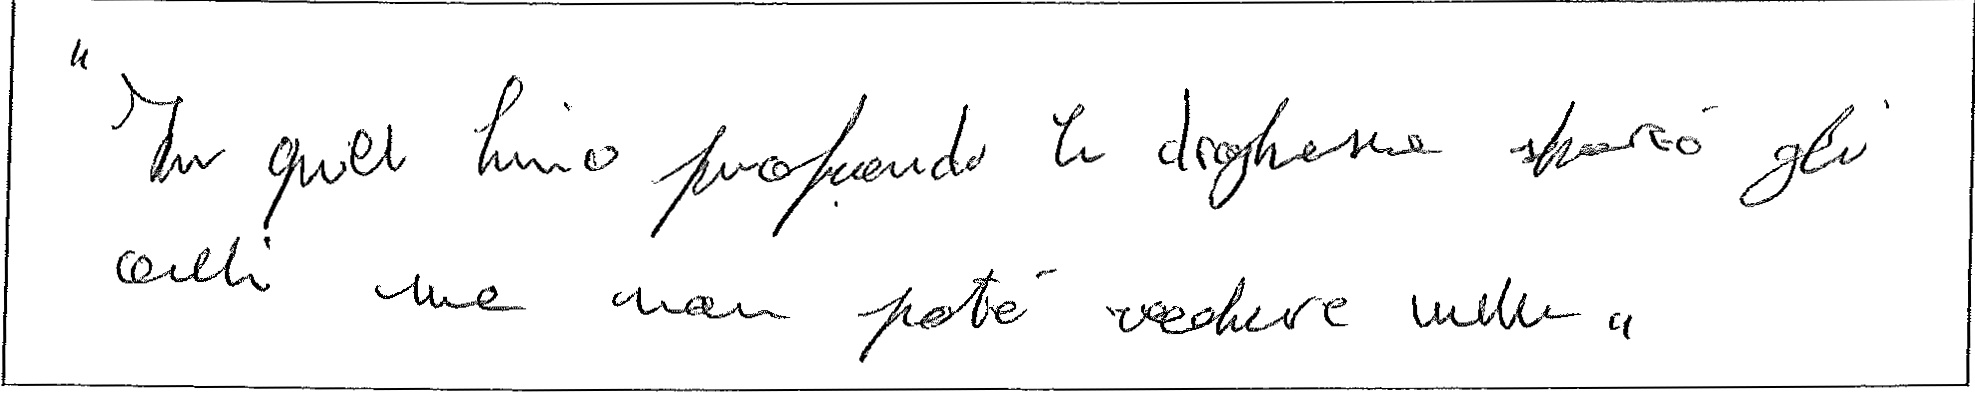 "In quel buio profondo la draghessa sparò gli
occhi ma non poté vedere nulla"